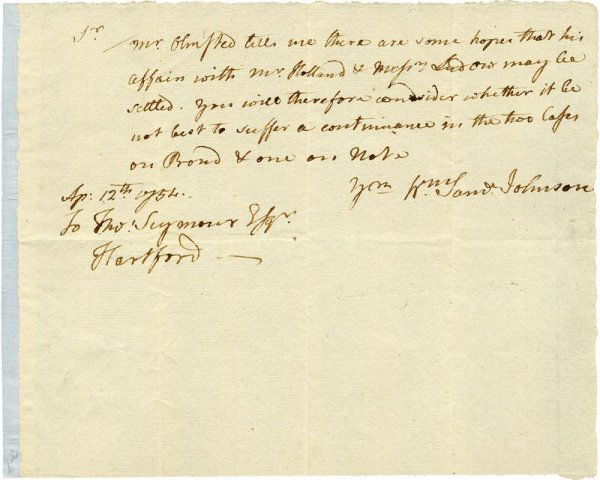 Sr.
Mr. Olmsted tells me there are some hopes that his
affair with Mr. Holland & Messrs. Ludow may be
settled. You will therefore consider whether it be
not best to suffer a continuance in the two Cases
on Bond & one on Note
Yrs. Wm. Saml. Johnson
Ap: 12th. 1754.
To Tho: Seymour Esqr.
Hartford —